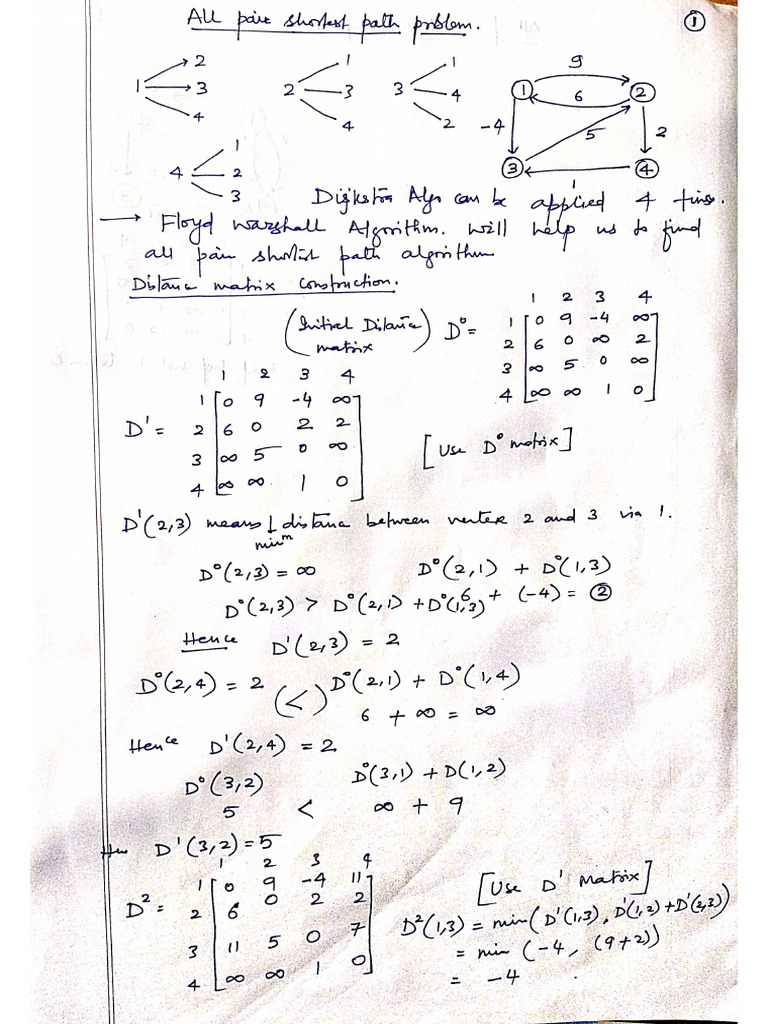 All pair shortest path problem.
1
1 → 2
→ 3
4
2 1
3
4
3 1
4
2
4 1
2
3
1 9 2
6
-4 5 2
3 4
Dijkstra Algo can be applied 4 times.
→ Floyd Warshall Algorithm. will help us to find
all pair shortest path algorithm
Distance matrix construction.
(Initial Distance matrix) D⁰ =
1 2 3 4
1 0 9 -4 ∞
2 6 0 ∞ 2
3 ∞ 5 0 ∞
4 ∞ ∞ 1 0
D¹ =
1 2 3 4
1 0 9 -4 ∞
2 6 0 2 2
3 ∞ 5 0 ∞
4 ∞ ∞ 1 0
[Use D⁰ matrix]
D¹(2,3) means ↓ distance between vertex 2 and 3 via 1.
minᵐ
D⁰(2,3) = ∞ D⁰(2,1) + D⁰(1,3)
D⁰(2,3) > D⁰(2,1) + D⁰(1,3) 6 + (-4) = 2
Hence D¹(2,3) = 2
D⁰(2,4) = 2 (<) D⁰(2,1) + D⁰(1,4)
6 + ∞ = ∞
Hence D¹(2,4) = 2
D⁰(3,2) D⁰(3,1) + D(1,2)
5 < ∞ + 9
D¹(3,2) = 5
D² =
1 2 3 4
1 0 9 -4 11
2 6 0 2 2
3 11 5 0 7
4 ∞ ∞ 1 0
[Use D¹ Matrix]
D²(1,3) = min(D¹(1,3), D¹(1,2) + D¹(2,3))
= min (-4, (9+2))
= -4